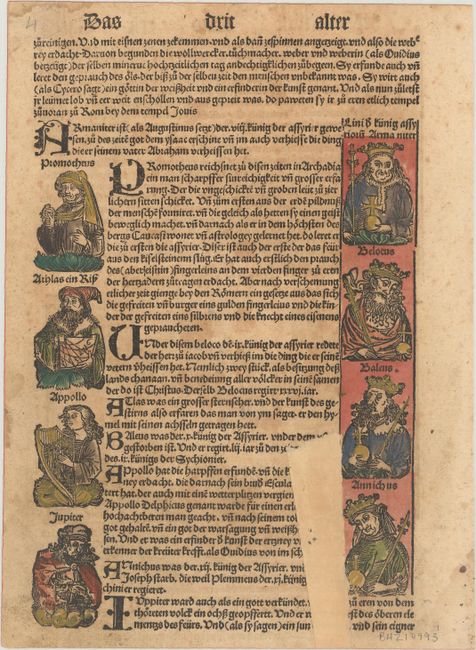 Das drit alter
zůreinigen. Vnd mit eißnen zenen zekemmen. vnd als dañ zespinnen angezeigt. vnd also die web
rey erdacht. Daruon begunden die wollwercker. tůchmacher. weber vnd weberin (als Ouidius
bezeůgt) der selben minerue hochzeitlichen tag andechtigklichen zůbegeen. Sy erfunde auch vñ
leret den geprauch des öls. der biß zu der selben zeit den menschen vnbekannt was. Sy wirt auch
(als Cycero sagt) ein göttin der weißheit vnd ein erfinderin der kunst genant. Vnd als nun zůletst
ir leümet lob vñ eer weit erschollen vnd auß gepreit was. do paweten sy ir zu eren etlich tempel
zůuoran zu Rom bey dem tempel Jouis
ARmaniter ist (als Augustinus setzt) der .viij. künig der assyrier gewe
sen. zu des zeitē got dem ysaac erschine vñ im auch verhieße die ding
die er seinem vater Abraham verheissen het.
Lini d küníg assy
rioru Arma niter
Prometheus
PRomotheus reichsnet zu disen zeiten in Archadia
ein man scharpffer sinreichigkeit vñ grosser erfa
rung. Der die vngeschickt vñ groben leut zu zier
lichern sitten schicket. Vñ zum ersten auß der erdē pildnuß
der menschē fourmiret. vñ die geleich als hetten sy einen geist
beweglich machet. vñ darnach als er in dem höchsten des
bergs Caucasi wonet vñ astrologey gelernet het. do leret er
die zu ersten die assyrier. Diser ist auch der erste der das feur
auß den kißelsteinem slug. Er hat auch erstlich den prauch
des fingerleins an dem vierden finger zu eren
der hertzadern zůtragen erdacht. Aber nach verscheinung
etlicher zeit gienge bey den Römern ein gesetze auß das sich
die gefreiten vñ burger eins gulden fingerleins vnd die kin
der der gefreiten eins silbrins vnd die knecht eines eisenens
geprauchten.
Belocus
Athlas ein Riß
UNder disem beloco dē .ix. künig der assyrier redete
der herr zu iacob vñ verhieß im die ding die er seinē
vetern vheissen het. Nemlich zwey stück. als besitzung deß
lands chanaan. vñ benedeiung aller völcker in seinē samen
der do ist Christus. Derselb Belocus regirt xxxv. iar.
Baleus.
Appollo
ATlas was ein grosser sternscher. vnd der kunst des ge
stirns also erfaren das man von ym saget. er den hy
mel mit seinen achseln getragen hett.
BAleus was der .x. künig der Assyrier. vnder dem
gestorben ist. Vnd er regirt .lij. iar zu den
des .ix. künigs der Sychionier.
APpollo hat die harpffen erfundē. vñ die
ney erdacht. die darnach sein sun Escula
tert hat. der auch mit einē wetterplitzen vergien
Appollo Delphicus genant warde für einen erl
hochachtberen man geacht. vñ nach seinem to
got gehaltē. vñ ein got der warsagung vñ weißh
sen. Vnd er was ein erfinder d kunst der ertzney v
erkenner der kreüter krefft. als Ouidius von im sch
Annichus
Jupiter
ANnichus was der .xij. künig der Assyrier. vn
Joseph starb. die weil Plemmens der .xj. künig
chinier regieret.
IUppiter ward auch als ein got verkündet.
thöreten volck ein ochß geopffertt. Vnd er n
mentzs des feürs. Vnd (als sy sagen) ein sun
zu eren von dem
est des öbern ele
vnd sein eigner
BHZ14993